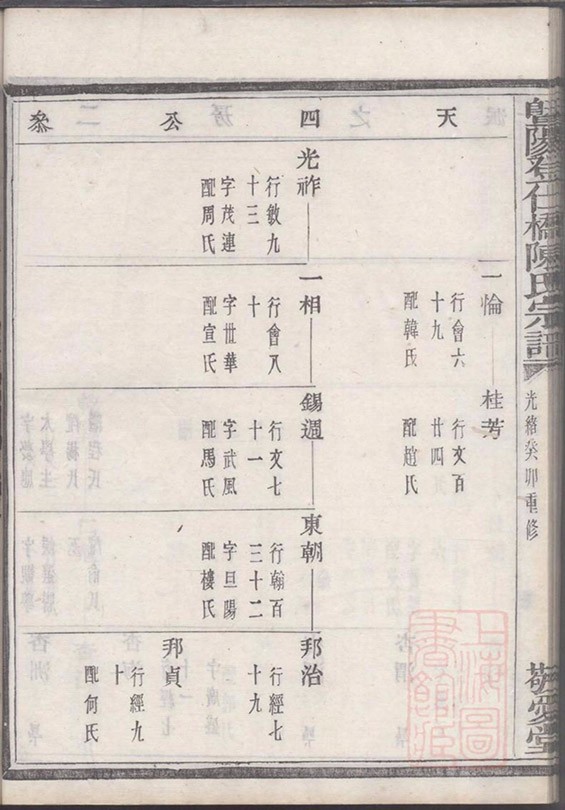 暨陽登仕橋陳氏宗譜
光緒癸卯重修
敬愛堂
天四公叅
一倫
行會六
十九
配韓氏
桂芳
行文百
廿四
配趙氏
光祚
行敏九
十三
字茂連
配周氏
一相
行會八
十
字世華
配宣氏
錫週
行文七
十一
字武風
配馬氏
東朝
行翰百
三十二
字旦陽
配樓氏
邦治
行經七
十九
邦貞
行經九
十
配何氏
上海圖書館藏